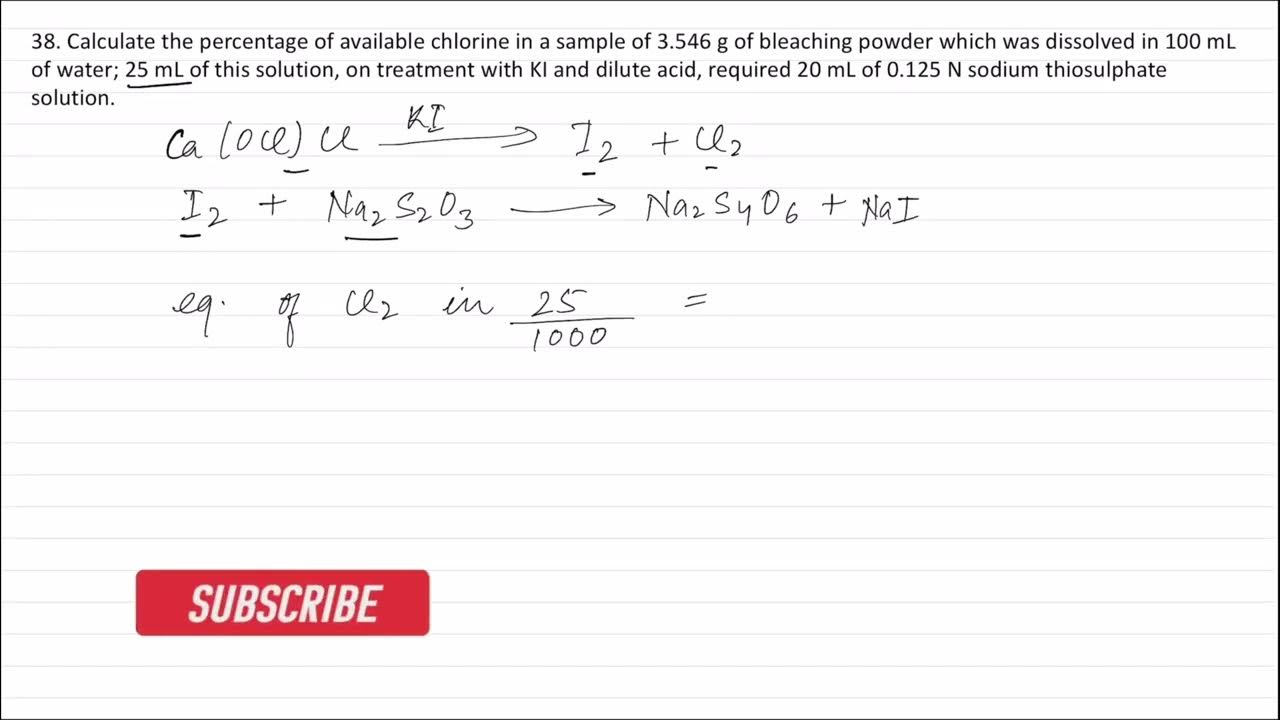 38. Calculate the percentage of available chlorine in a sample of 3.546 g of bleaching powder which was dissolved in 100 mL
of water; 25 mL of this solution, on treatment with KI and dilute acid, required 20 mL of 0.125 N sodium thiosulphate
solution.
KI
Ca (OCl) Cl ⟶ I2 + Cl2
I2 + Na2S2O3 ⟶ Na2S4O6 + NaI
eq. of Cl2 in 25 =
1000
SUBSCRIBE